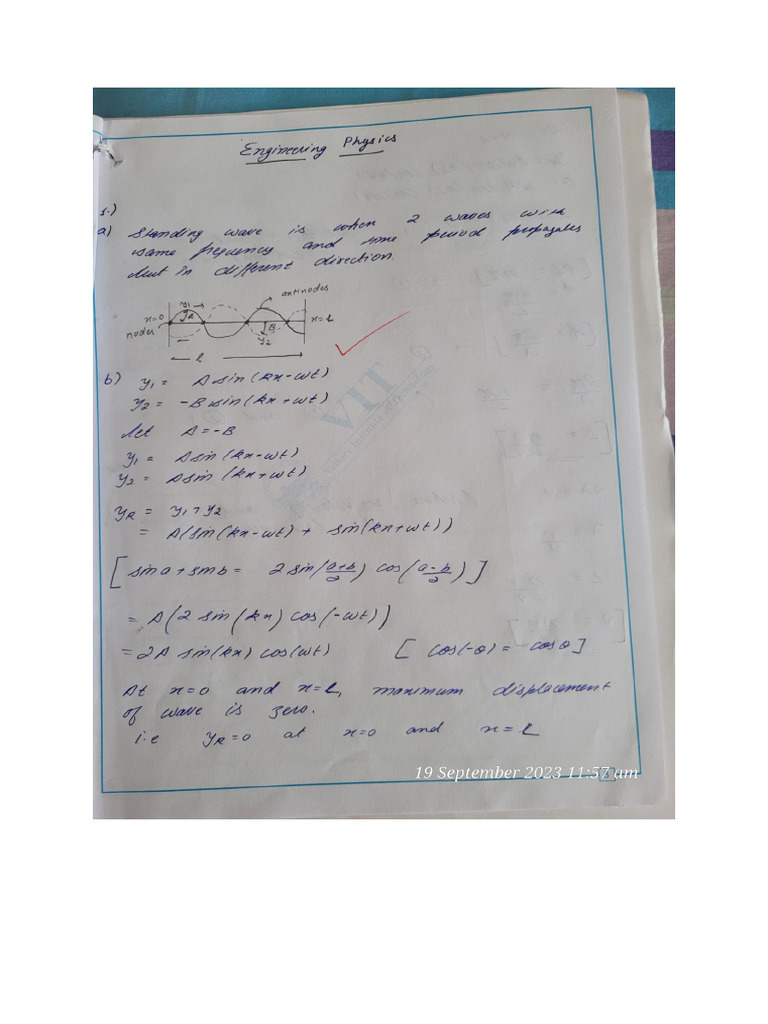 Engineering Physics
1.)
a) Standing wave is when 2 waves with
same frequency and time period propagates
but in different direction.
y1 →
antinodes
x=0
A
x=L
nodes
B
y2
l
b) y1 = A sin(kx-ωt)
y2 = -B sin(kx+ωt)
Let A=-B
y1 = A sin(kx-ωt)
y2 = A sin(kx+ωt)
yR = y1+y2
= A(sin(kx-ωt) + sin(kx+ωt))
[sin a + sin b = 2 sin(a+b/2) cos(a-b/2)]
= A(2 sin(kx) cos(-ωt))
= 2A sin(kx) cos(ωt) [cos(-θ) = cosθ]
At x=0 and x=L, maximum displacement
of wave is zero.
i.e yR=0 at x=0 and x=L
VIT
19 September 2023 11:57 am